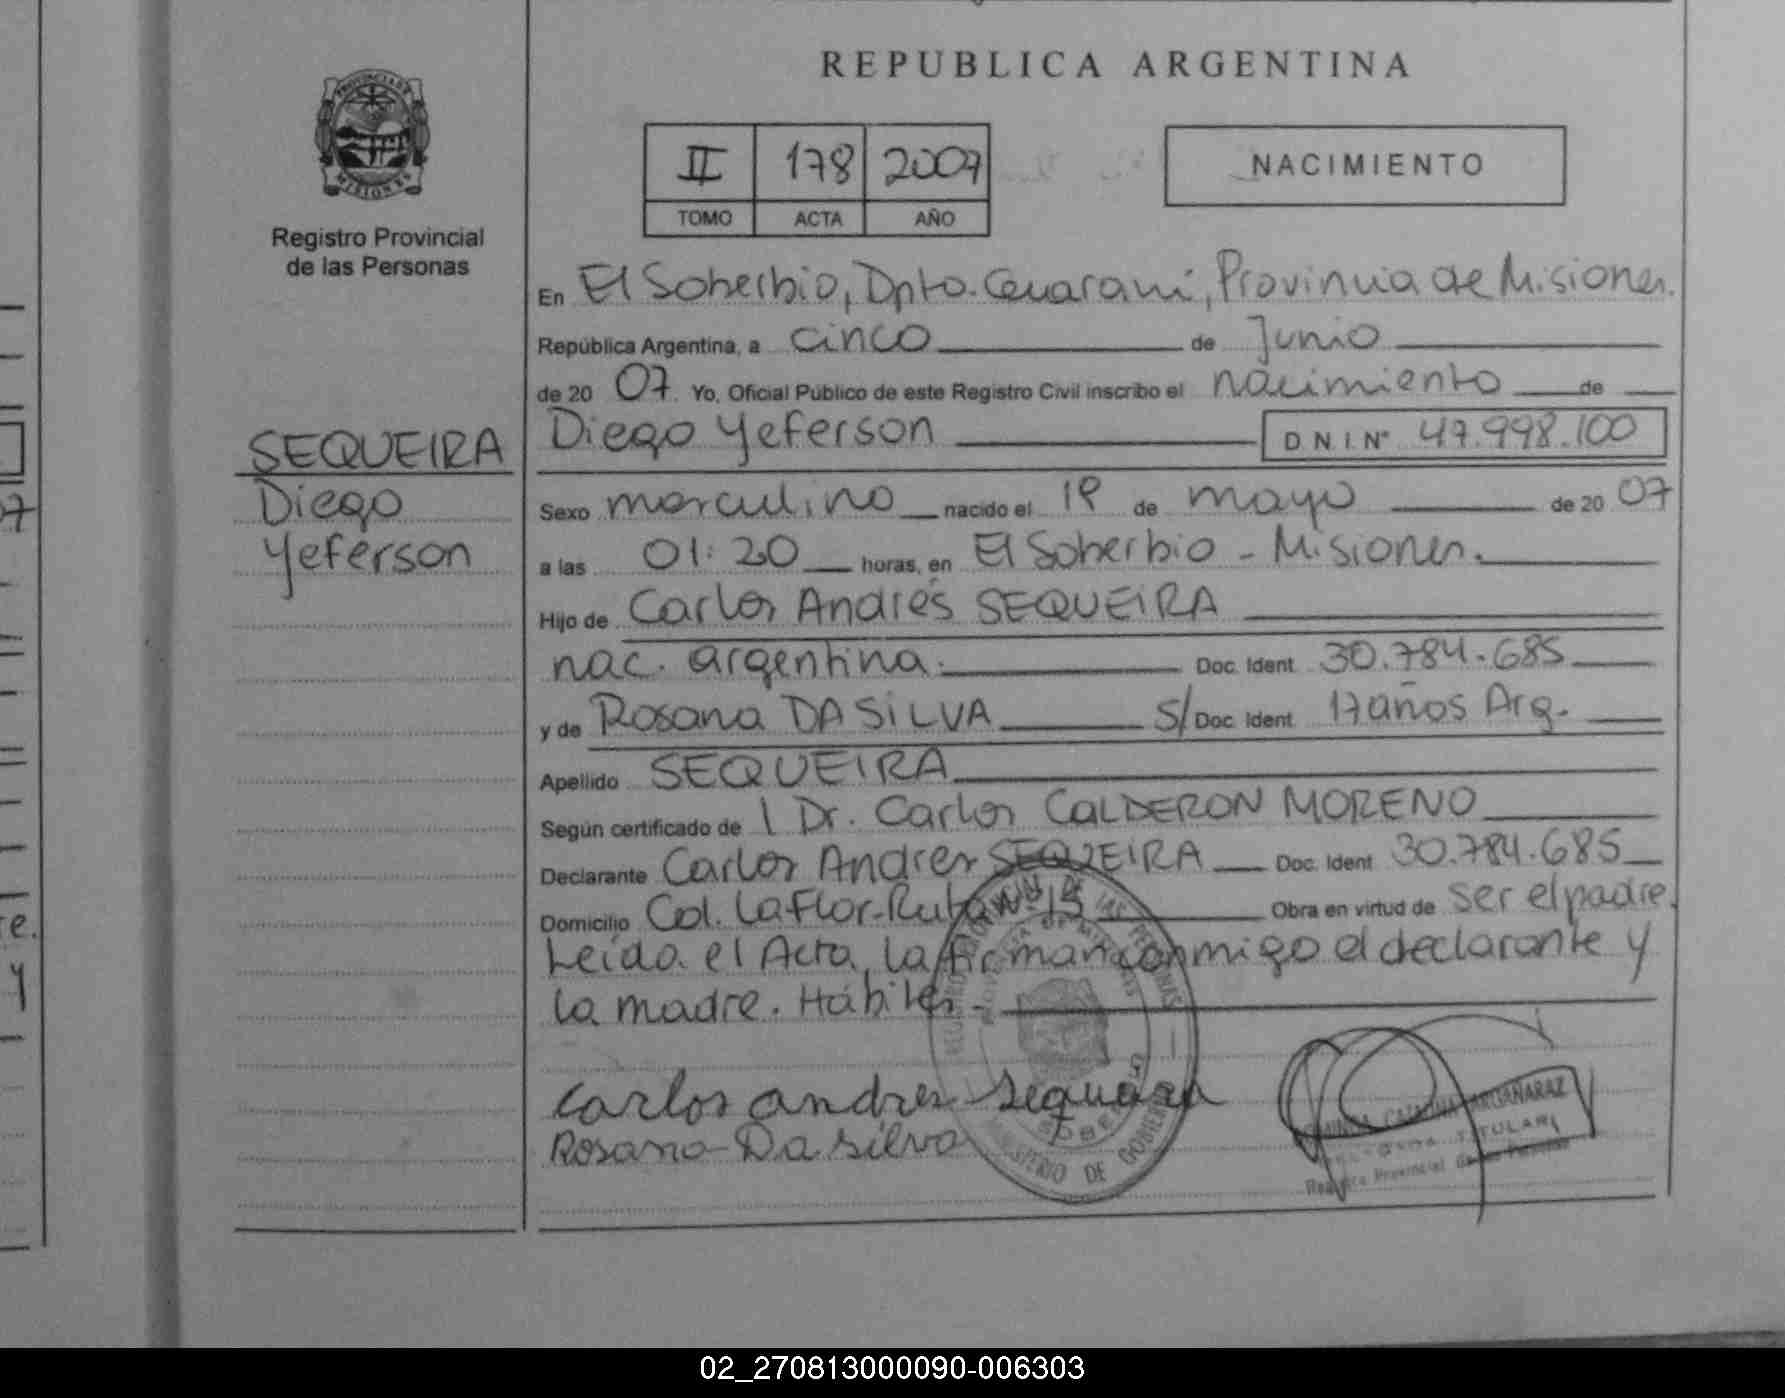 REPUBLICA ARGENTINA
PROVINCIA DE MISIONES
Registro Provincial
de las Personas
II 178 2007
TOMO ACTA AÑO
NACIMIENTO
En El Soberbio, Dpto. Guaraní, Provincia de Misiones.
República Argentina, a cinco de Junio
de 20 07. Yo, Oficial Público de este Registro Civil inscribo el nacimiento de
Diego Yeferson D.N.I. Nº 47.998.100
SEQUEIRA
Diego
Yeferson
Sexo masculino nacido el 19 de mayo de 20 07
a las 01:20 horas, en El Soberbio - Misiones.
Hijo de Carlos Andrés SEQUEIRA
nac. argentina. Doc. Ident. 30.784.685
y de Rosana DA SILVA S/ Doc. Ident. 17 años Arg.
Apellido SEQUEIRA
Según certificado de 1 Dr. Carlos CALDERON MORENO
Declarante Carlos Andres SEQUEIRA Doc. Ident. 30.784.685
Domicilio Col. La Flor-Ruta Nº 15 Obra en virtud de ser el padre.
Leída el Acta, la firman conmigo el declarante y
la madre. Hábiles.
Carlos andres Sequeira
Rosana Da Silva
REGISTRO PROVINCIAL DE LAS PERSONAS
PROVINCIA DE MISIONES
SOBERBIO
MINISTERIO DE GOBIERNO
CATALINA ARGAÑARAZ
TITULAR
Registro Provincial de las Personas
7
re.
y
02_270813000090-006303